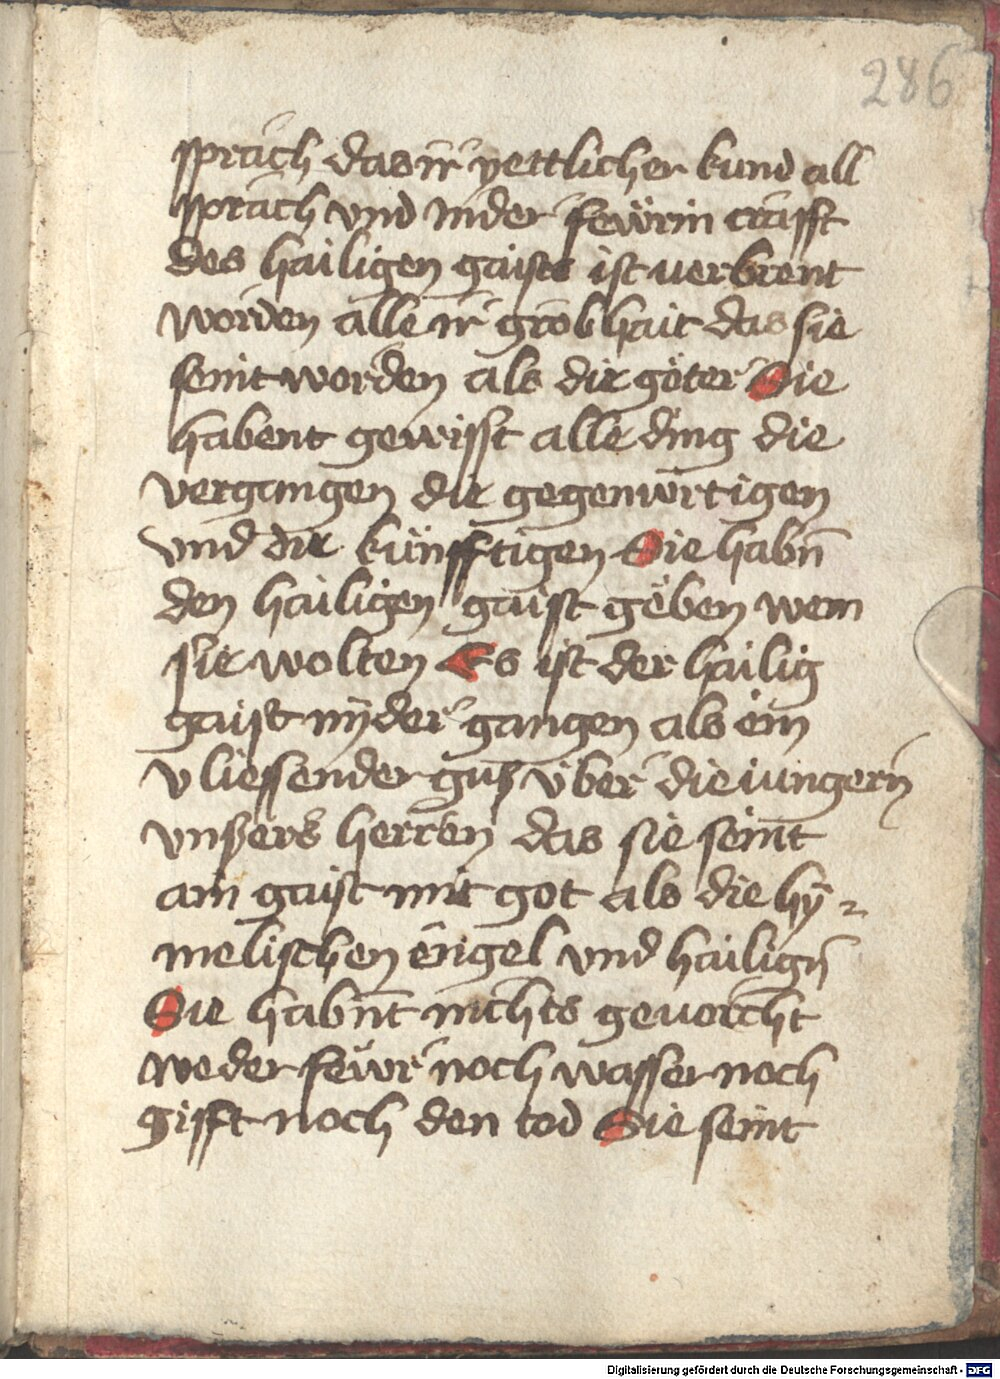 286
sprach das ir yettlicher kund all
sprach vnd in der fewrin crafft
des hailigen gaists ist uerbrent
worden alle ir grobhait das sie
seint worden als die göter Sie
habent gewisst alle ding die
vergangen die gegenwirtigen
vnd die künfftigen Sie habn̄
den hailigen gaist geben wem
sie wolten Es ist der hailig
gaist nyder gangen als ein
vliessender guß über die iungern
vnßers herren das sie seint
ain gaist mit got als die hÿ-
melischen engel vnd hailign̄
Sie habn̄t nichts geuorcht
weder fewr noch wasser noch
gifft noch den tod Sie seint
Digitalisierung gefördert durch die Deutsche Forschungsgemeinschaft - DFG